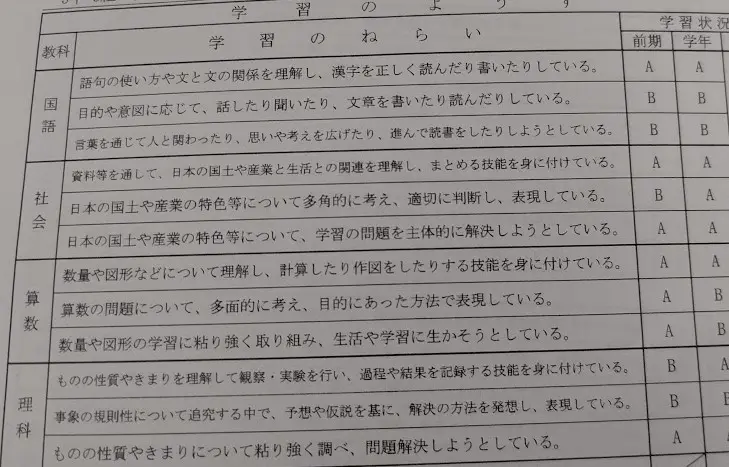 学習のようす
教科 学習のねらい 学習状況
前期 学年
国語
語句の使い方や文と文の関係を理解し、漢字を正しく読んだり書いたりしている。 A A
目的や意図に応じて、話したり聞いたり、文章を書いたり読んだりしている。 B B
言葉を通じて人と関わったり、思いや考えを広げたり、進んで読書をしたりしようとしている。 B B
社会
資料等を通して、日本の国土や産業と生活との関連を理解し、まとめる技能を身に付けている。 A A
日本の国土や産業の特色等について多角的に考え、適切に判断し、表現している。 B A
日本の国土や産業の特色等について、学習の問題を主体的に解決しようとしている。 A A
算数
数量や図形などについて理解し、計算したり作図をしたりする技能を身に付けている。 A A
算数の問題について、多面的に考え、目的にあった方法で表現している。 A B
数量や図形の学習に粘り強く取り組み、生活や学習に生かそうとしている。 A B
理科
ものの性質やきまりを理解して観察・実験を行い、過程や結果を記録する技能を身に付けている。 B A
事象の規則性について追究する中で、予想や仮説を基に、解決の方法を発想し、表現している。 B B
ものの性質やきまりについて粘り強く調べ、問題解決しようとしている。 A A